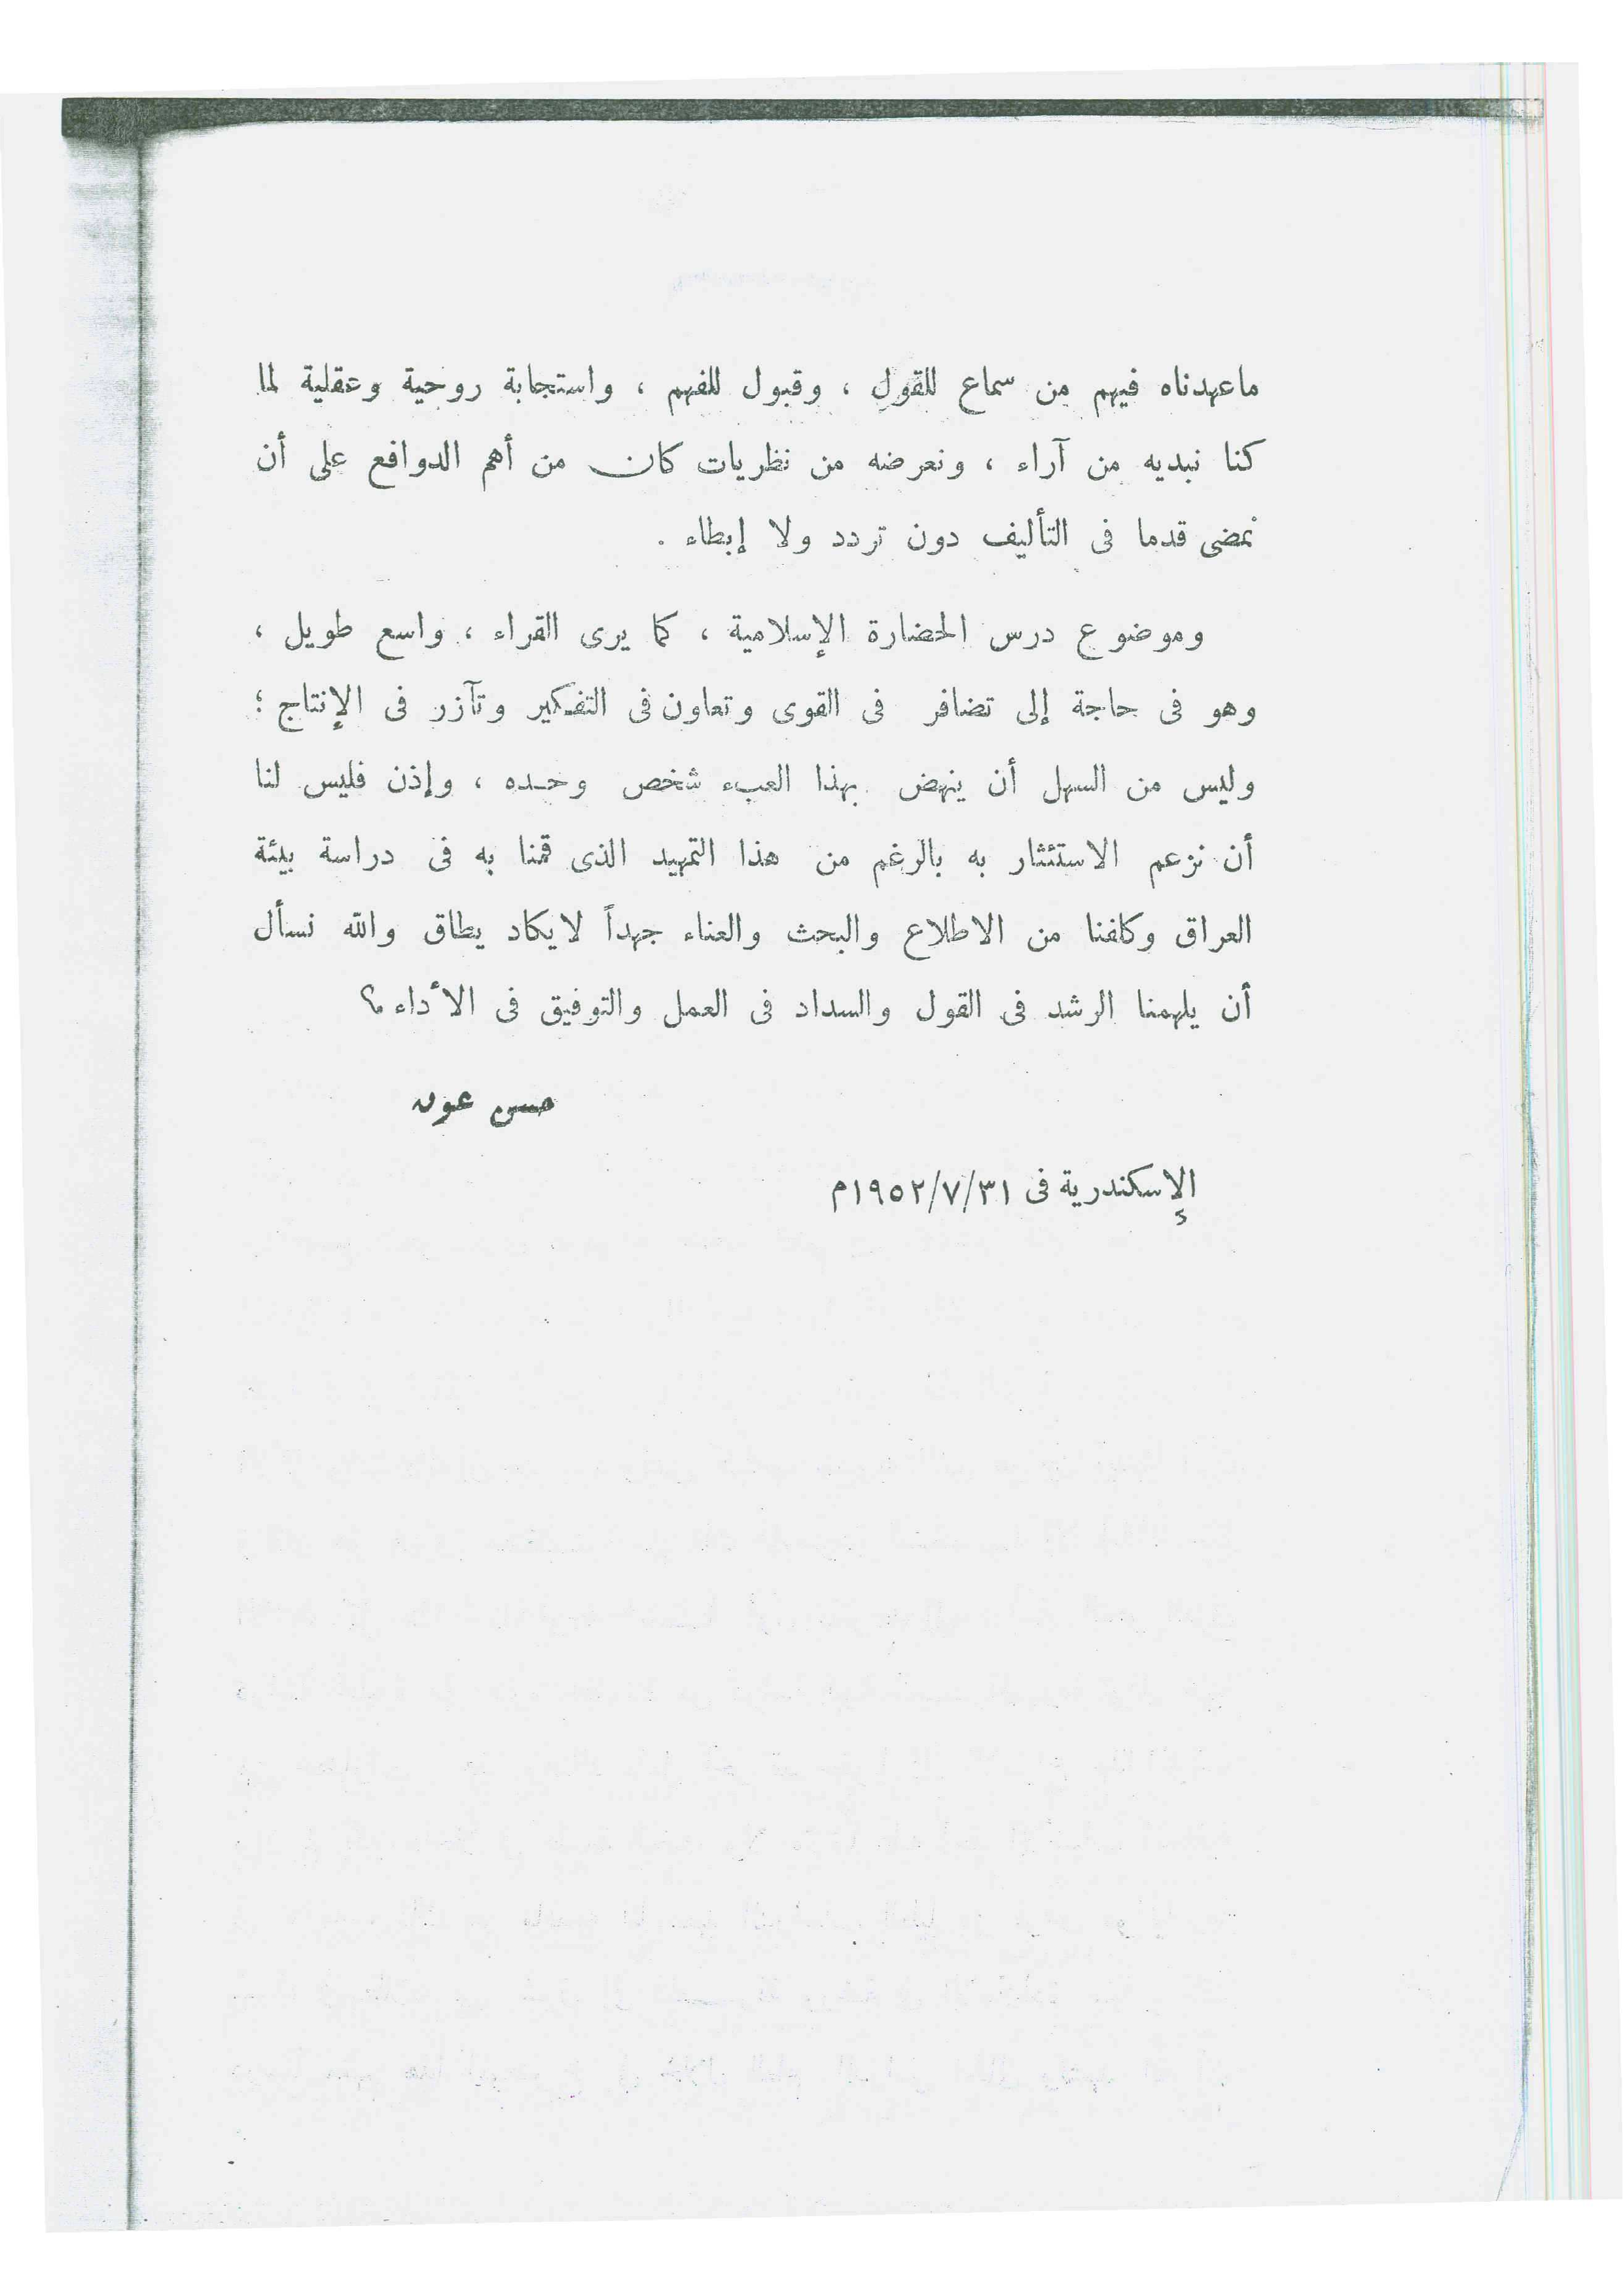 ماعهدناه فيهم من سماع للقول ، وقبول للفهم ، واستجابة روحية وعقلية لما
كنا نبديه من آراء ، ونعرضه من نظريات كان من أهم الدوافع على أن
نمضى قدما فى التأليف دون تردد ولا إبطاء .
وموضوع درس الحضارة الإسلامية ، كما يرى القراء ، واسع طويل ،
وهو فى حاجة إلى تضافر فى القوى وتعاون فى التفكير وتآزر فى الإنتاج ؛
وليس من السهل أن ينهض بهذا العبء شخص وحده ، وإذن فليس لنا
أن نزعم الاستئثار به بالرغم من هذا التمهيد الذى قمنا به فى دراسة بيئة
العراق وكلفنا من الاطلاع والبحث والعناء جهداً لايكاد يطاق والله نسأل
أن يلهمنا الرشد فى القول والسداد فى العمل والتوفيق فى الأداء
حسن عون
الإسكندرية فى ٣١/٧/١٩٥٢م